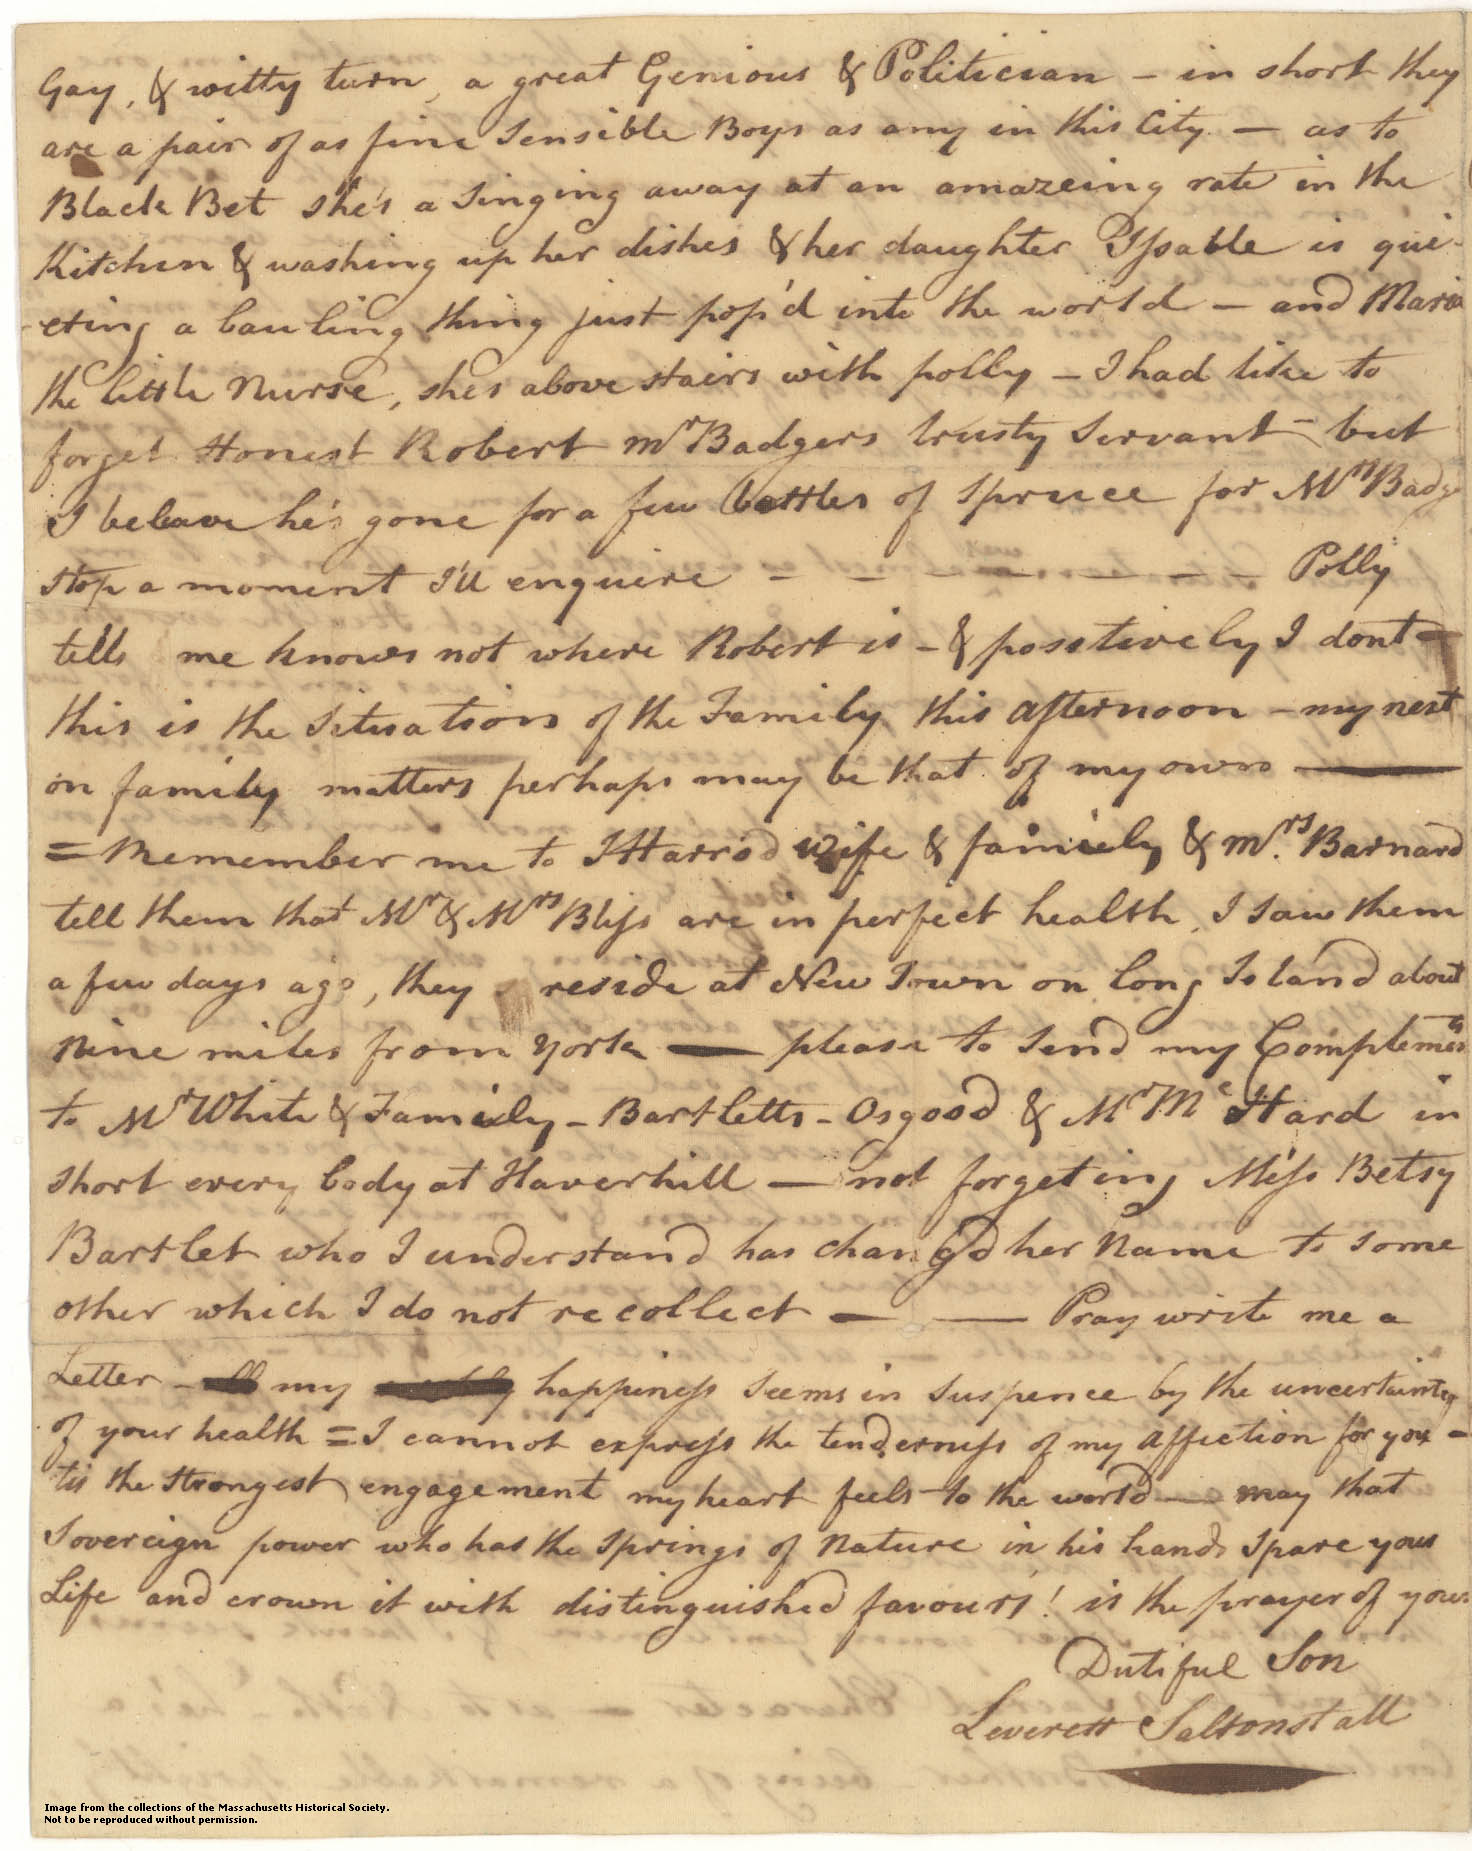 Gay, & witty turn, a great Genious & Politician - in short they
are a pair of as fine Sensible Boys as any in this City. - as to
Black Bet she's a Singing away at an amazeing rate in the
Kitchin & washing up her dishes & her daughter Issable is qui-
eting a bauling thing just pop'd into the world - and Maria
the little Nurse, shes above stairs with polly - I had like to
forget Honest Robert Mr Badgers trusty Servant - but
I beleave he's gone for a few bottles of Spruce for Mrs Badg
Stop a moment I'll enquire - - - - - - - - Polly
tells me knows not where Robert is - & possitively I dont -
this is the Situation of the Family this afternoon - my next
on family matters perhaps may be that of my own —
= Remember me to J Harrod wife & family & Mrs. Barnard
tell them that Mr & Mrs Bliss are in perfect health, I saw them
a few days ago, they reside at New Town on long Island about
Nine miles from York — please to Send my Complements
to Mr White & Family - Bartletts - Osgood & Mr McHard in
short every body at Haverhill — not forgeting Miss Betsy
Bartlet who I understand has changd her Name to some
other which I do not recollect — — Pray write me a
Letter - my happiness Seems in Suspence by the uncertainty
of your health = I cannot express the tenderness of my affection for you -
tis the strongest engagement my heart feels to the world — may that
Sovereign power who has the Springs of Nature in his hands Spare your
Life and crown it with distinguished favours! is the prayer of your
Dutiful Son
Leverett Saltonstall
Image from the collections of the Massachusetts Historical Society.
Not to be reproduced without permission.